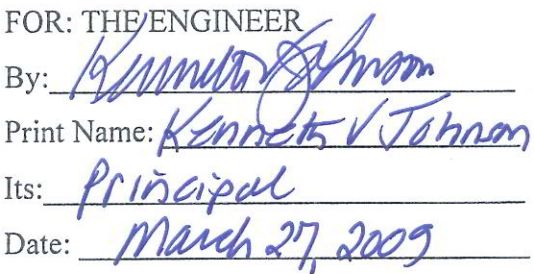 FOR: THE ENGINEER
By: Kenneth V Johnson
Print Name: Kenneth V Johnson
Its: Principal
Date: March 27, 2009